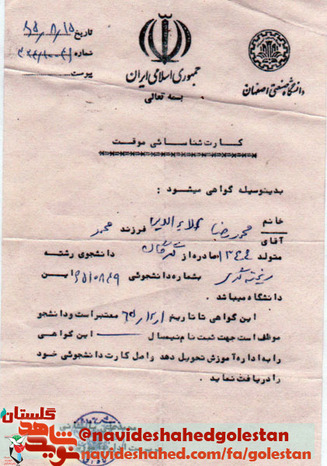 تاریخ ۶۵/۸/۱۵
شماره
پیوست
جمهوری اسلامی ایران
بسمه تعالی
دانشگاه صنعتی اصفهان
کارت شناسائی موقت
بدینوسیله گواهی میشود :
خانم
آقای محمدرضا علاءالدین فرزند محمد
متولد ۱۳۴۴ صادره از گرگان دانشجوی رشته
ریخته گری بشماره دانشجوئی این
دانشگاه میباشد
این گواهی تا تاریخ معتبر است و دانشجو
موظف است جهت ثبت نام نیمسال این گواهی
را به اداره آموزش تحویل دهد و اصل کارت دانشجوئی خود
را دریافت نماید .
گلستان
نوید شاهد
@navideshahedgolestan
navideshahed.com/fa/golestan